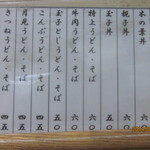 木の葉丼 六〇
親子丼 六〇
玉子丼 五〇
特上うどん・そば 六〇
牛肉うどん・そば 六〇
玉子とじうどん・そば 五〇
こんぶうどん・そば 四五
月見うどん・そば 四五
きつねうどん・そば 四五